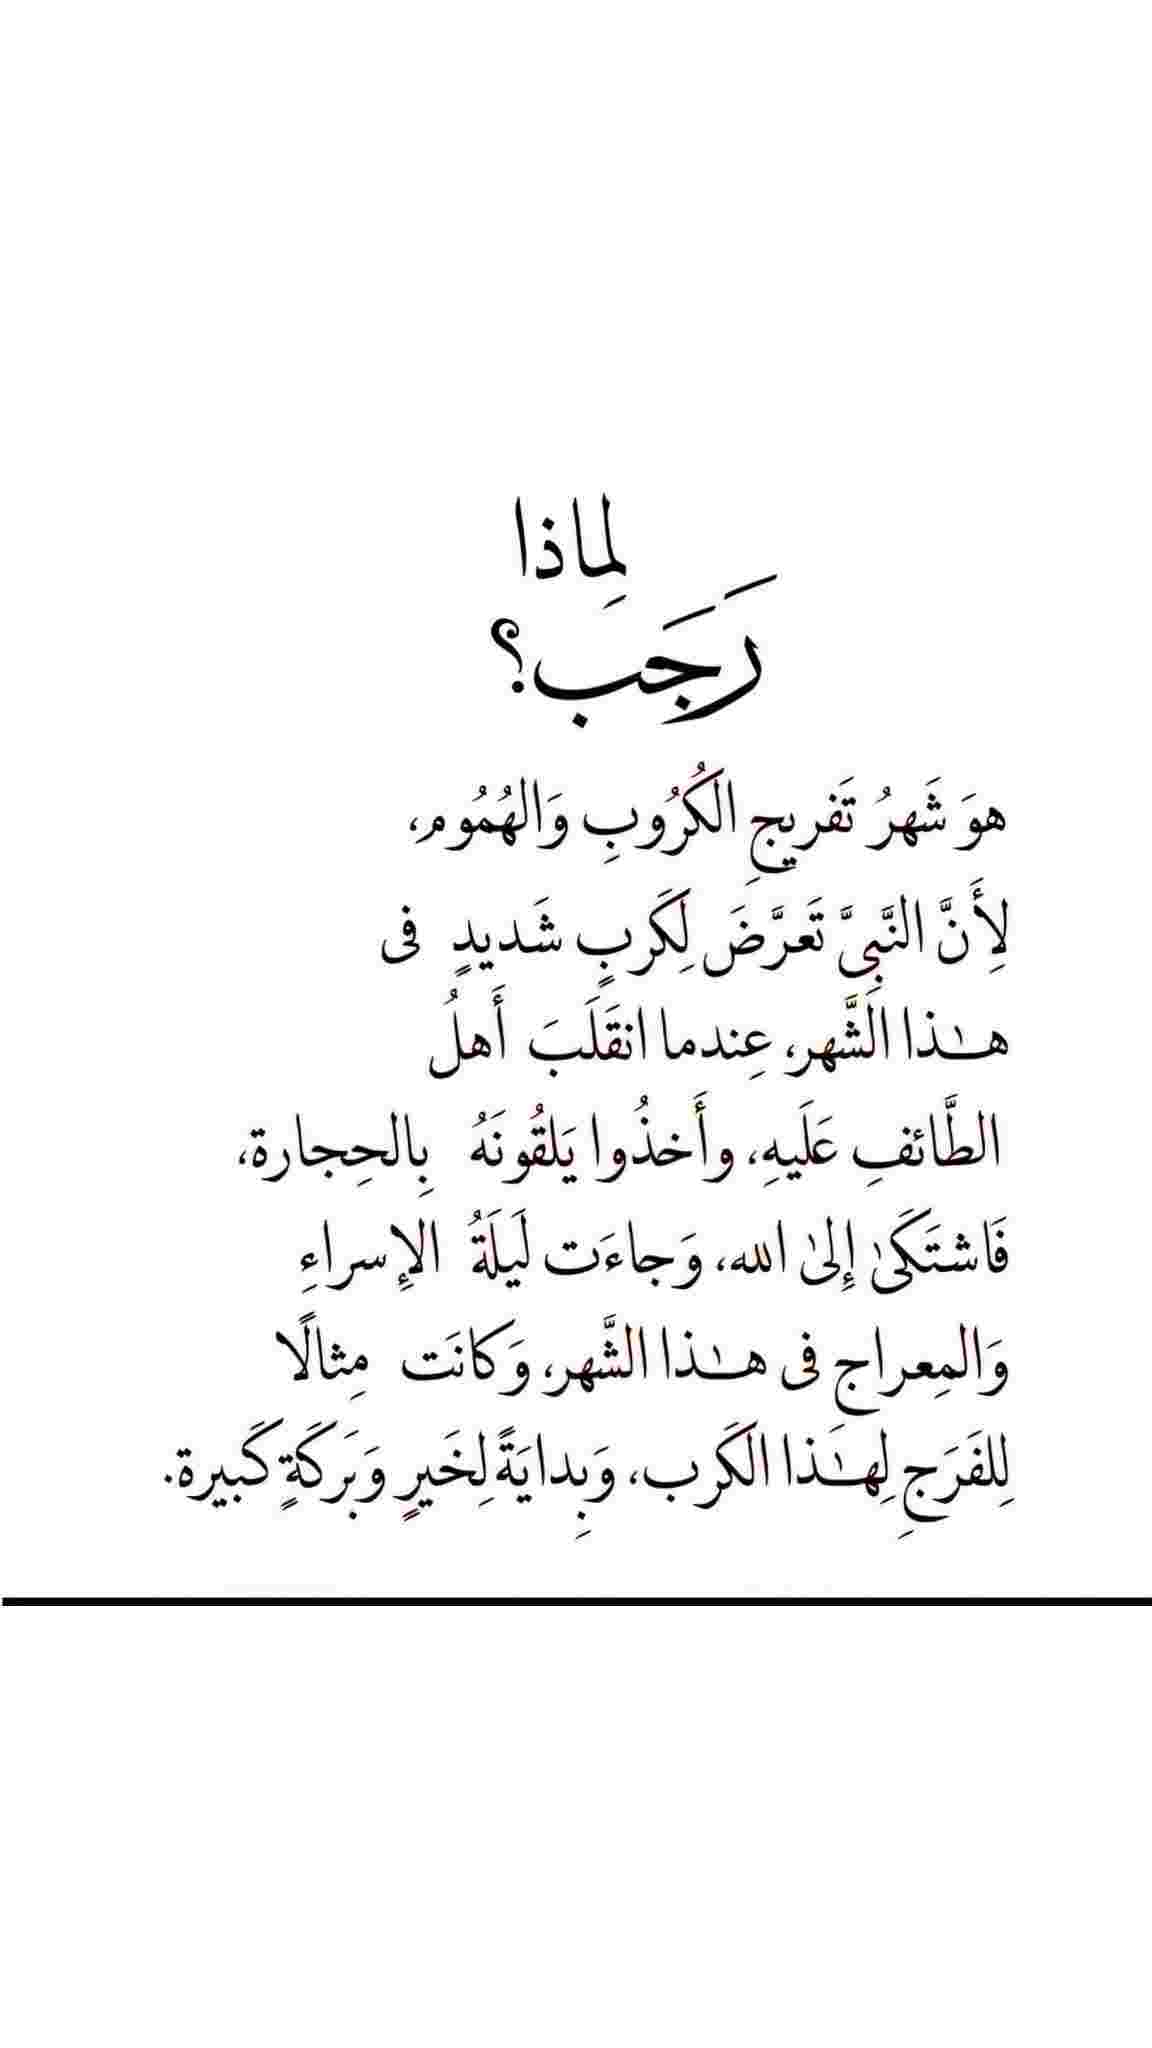 لِماذا
رَجَب؟
هوَ شَهرُ تَفريجِ الكُرُوبِ وَالهُمُوم،
لِأَنَّ النَّبِىَّ تَعَرَّضَ لِكَربٍ شَديدٍ فى
هـٰذا الشَّهر، عِندما انقَلَبَ أَهلُ
الطَّائفِ عَلَيهِ، وأَخذُوا يَلقُونَهُ بِالحِجارة،
فَاشتَكَىٰ إِلىٰ الله، وَجاءَت لَيلَةُ الإِسراءِ
وَالمِعراجِ فى هـٰذا الشَّهر، وَكانَت مِثالًا
لِلفَرَجِ لِهـٰذا الكَرب، وَبِدايَةً لِخَيرٍ وَبَرَكَةٍ كَبيرة.